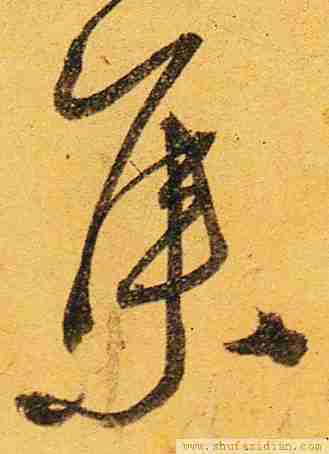 康
www.shufazidian.com